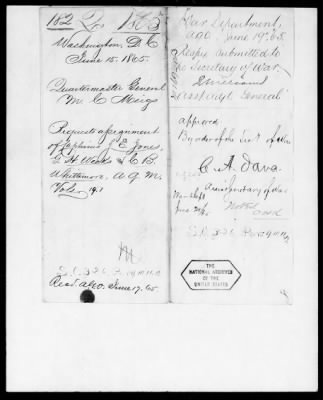 182 Q 1865
Washington, D.C
June 15. 1865.
Quartermaster General
M. C. Meigs
Requests assignment
of Captains J. E. Jones,
G. H. Weeks & C. B.
Whittemore, A. Q. M.
Vols.
M
S.O. 326
Recd. A.G.O. June 17. 65
War Department,
A.G.O. June 19th 65.
Resp'y submitted to
the Secretary of War.
Asst Adjt General
approved
By order of the Sect of War
C. A. Dana
Asst Secretary of War
War Dept
June 20/65
Noted
S.O. 326
THE
NATIONAL ARCHIVES
OF THE
UNITED STATES